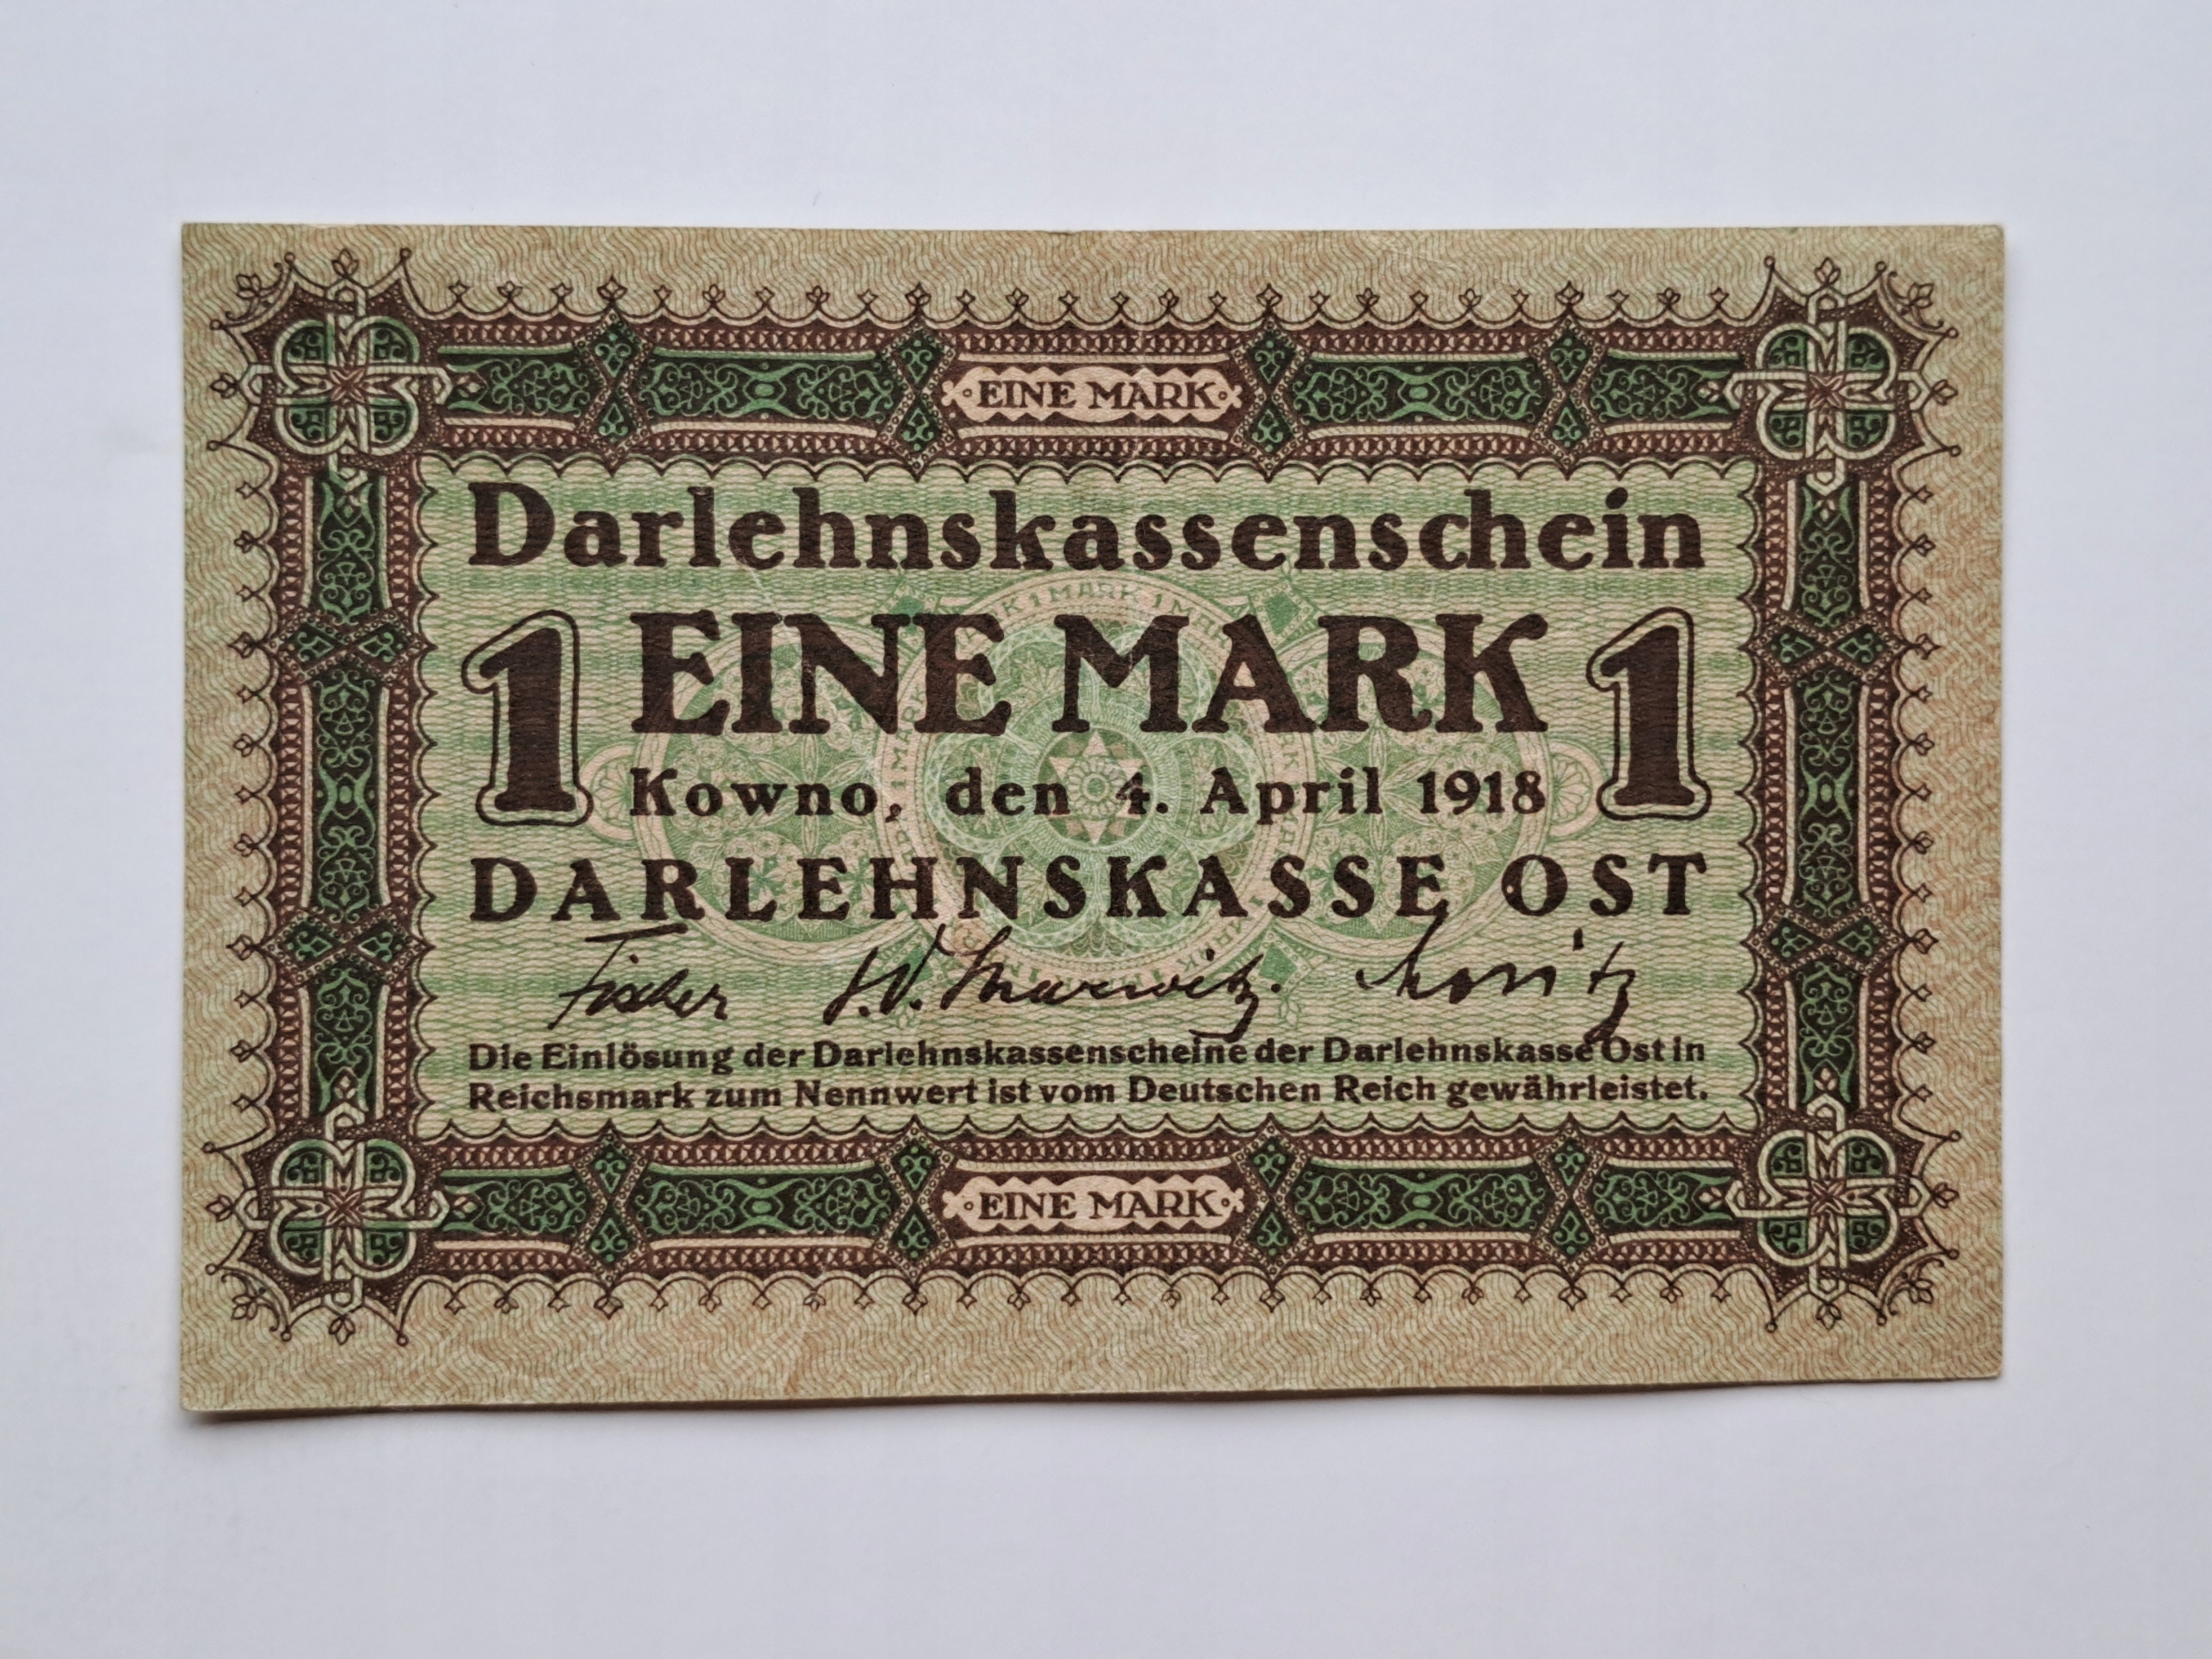 EINE MARK
Darlehnskassenschein
1 EINE MARK 1
Kowno, den 4. April 1918
DARLEHNSKASSE OST
Fischer
Die Einlösung der Darlehnskassenscheine der Darlehnskasse Ost in
Reichsmark zum Nennwert ist vom Deutschen Reich gewährleistet.
EINE MARK